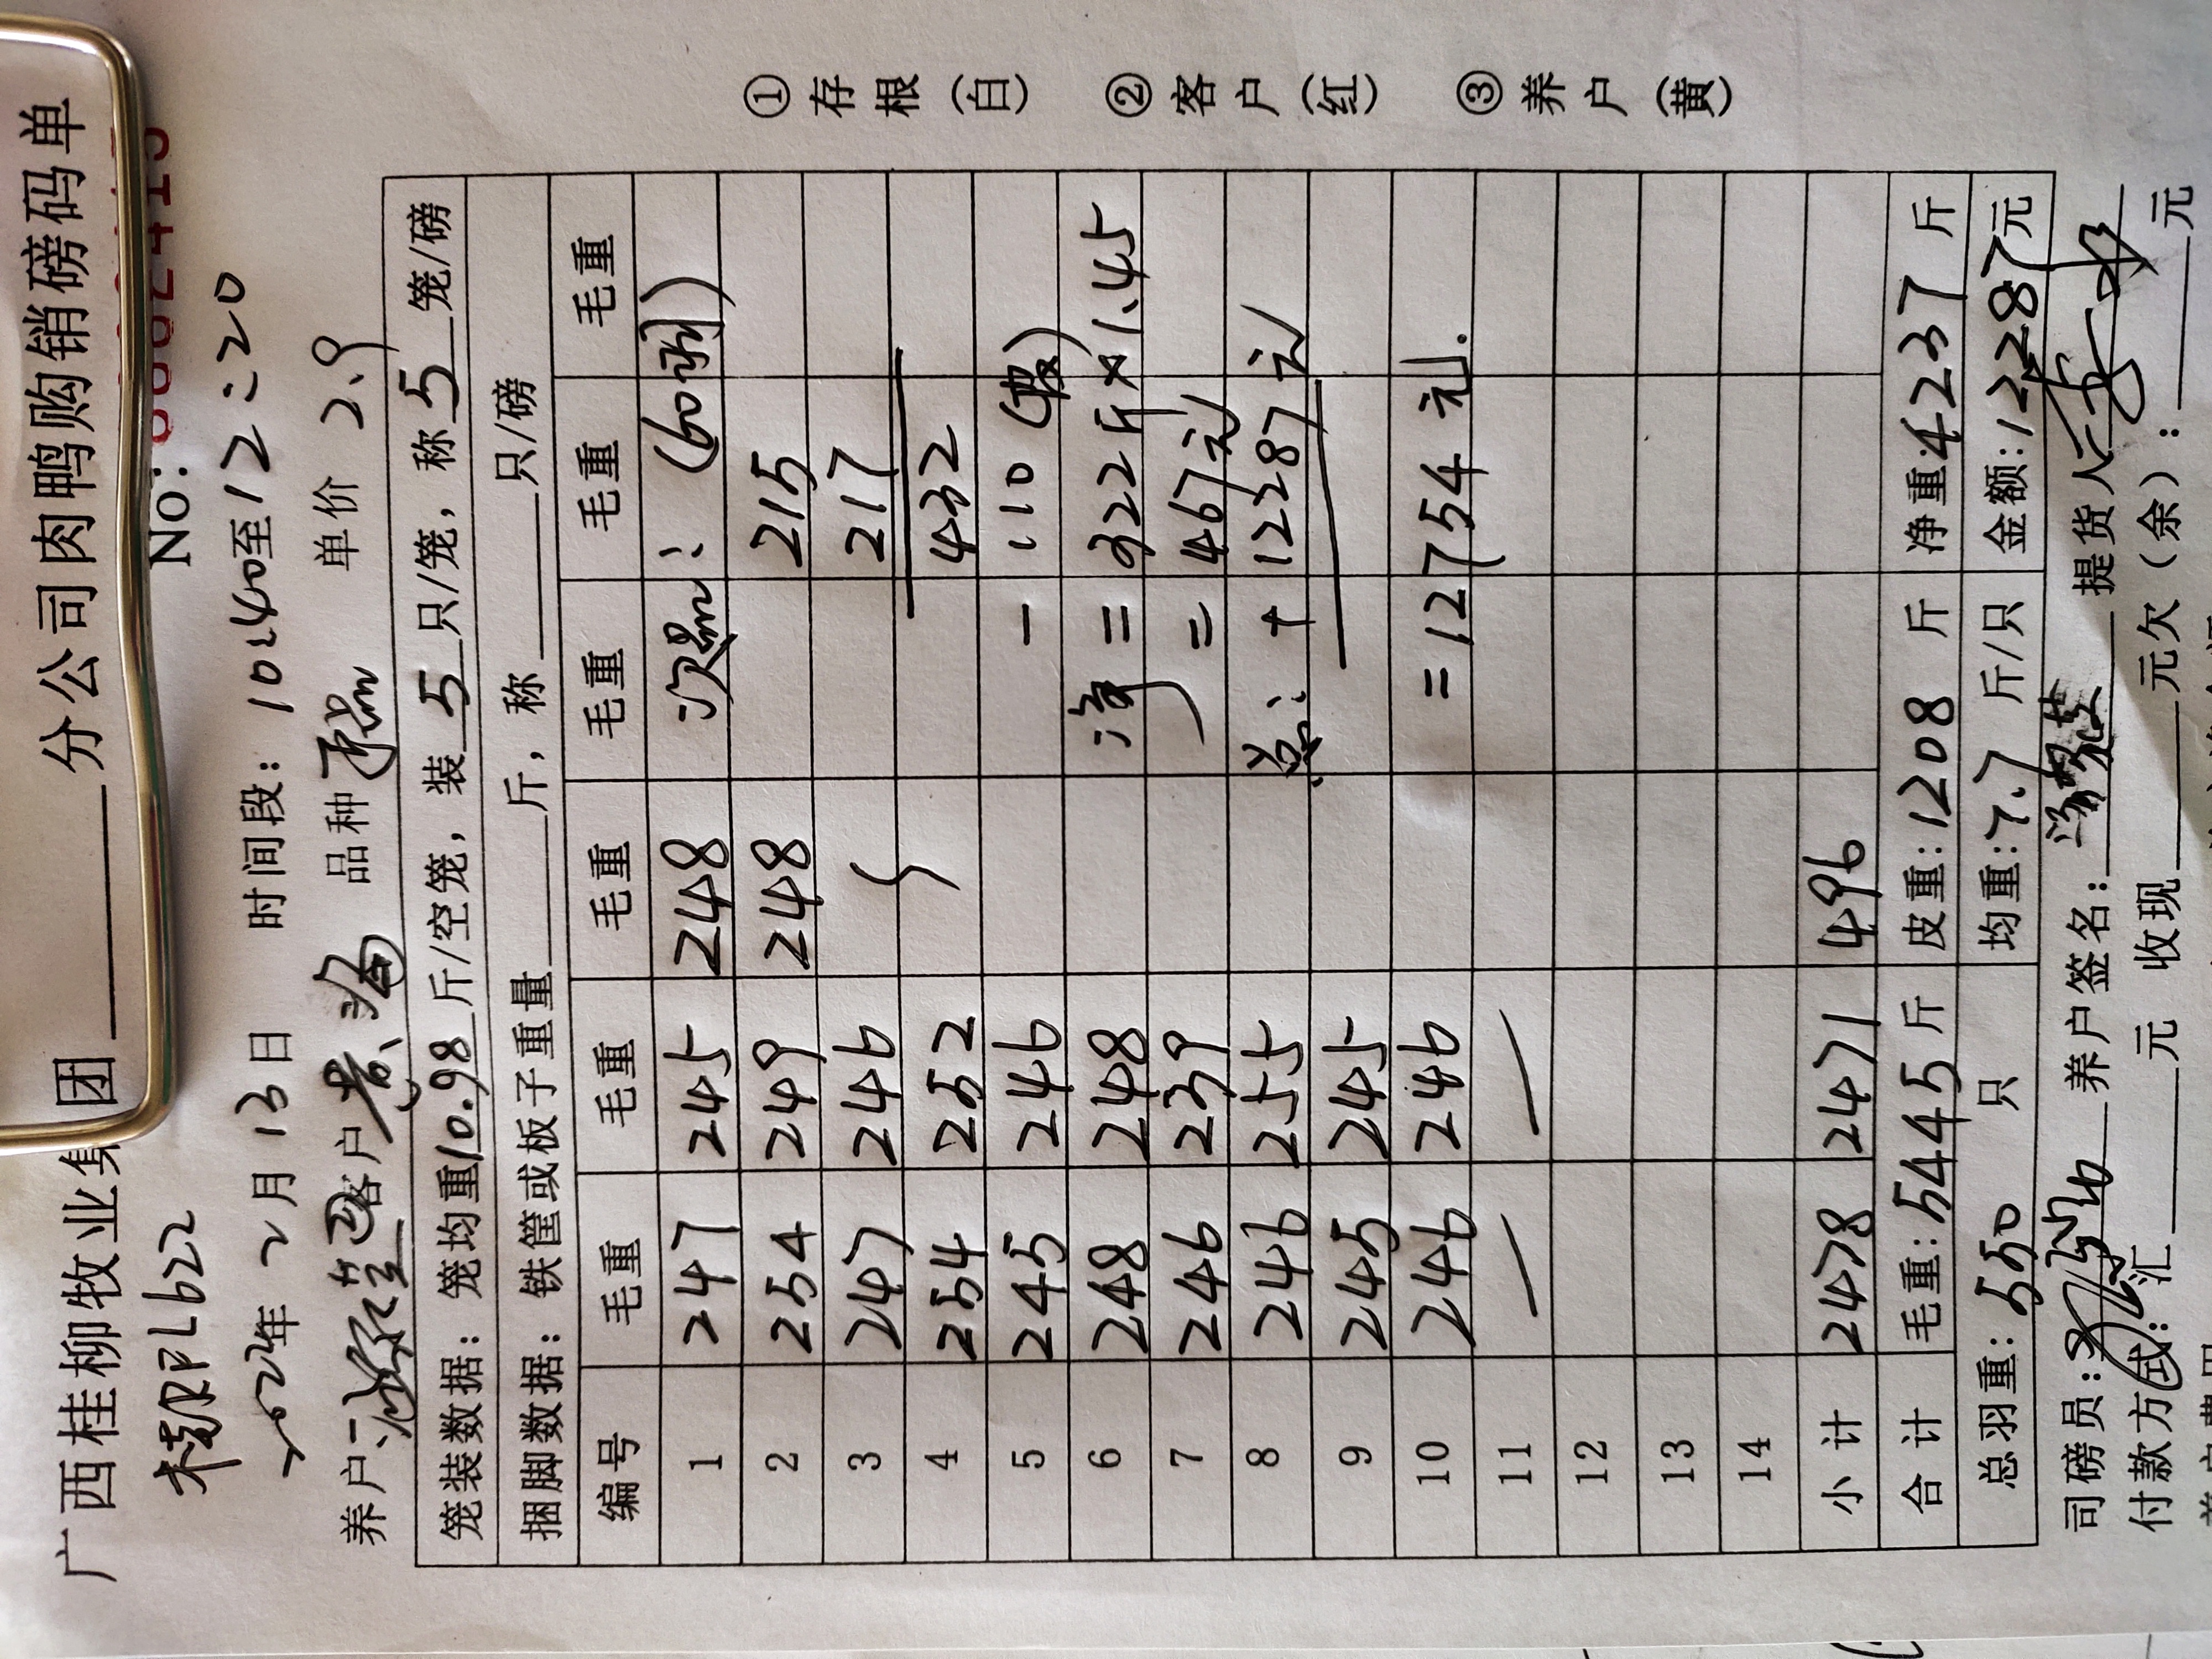 广西桂柳牧业集团 分公司肉鸭购销磅码单
L6622 No:
2024年 2月 13日 时间段: 10:40至12:20
养户: 客户 品种 单价 2.9
笼装数据: 笼均重10.98斤/空笼, 装 5 只/笼, 称 5 笼/磅
捆脚数据: 铁筐或板子重量 斤, 称 只/磅
编号 毛重 毛重 毛重 毛重 毛重 毛重
1 247 245 248 次品: (60羽)
2 254 249 248 215
3 247 246 217
4 254 252 432
5 245 246 - 110 (皮)
6 248 248 净 = 322斤×1.45
7 246 239 = 467元
8 246 255 总: + 12287元
9 245 245
10 246 246 = 12754元.
11 — —
12
13
14
小计 2478 2471 496
合计 毛重: 5445斤 皮重: 1208 斤 净重: 4237 斤
总羽重: 550 只 均重: 7.7 斤/只 金额: 12287元
司磅员: 养户签名: 提货人:
付款方式: 汇 元 收现 元欠(余): 元
①存根(白) ②客户(红) ③养户(黄)